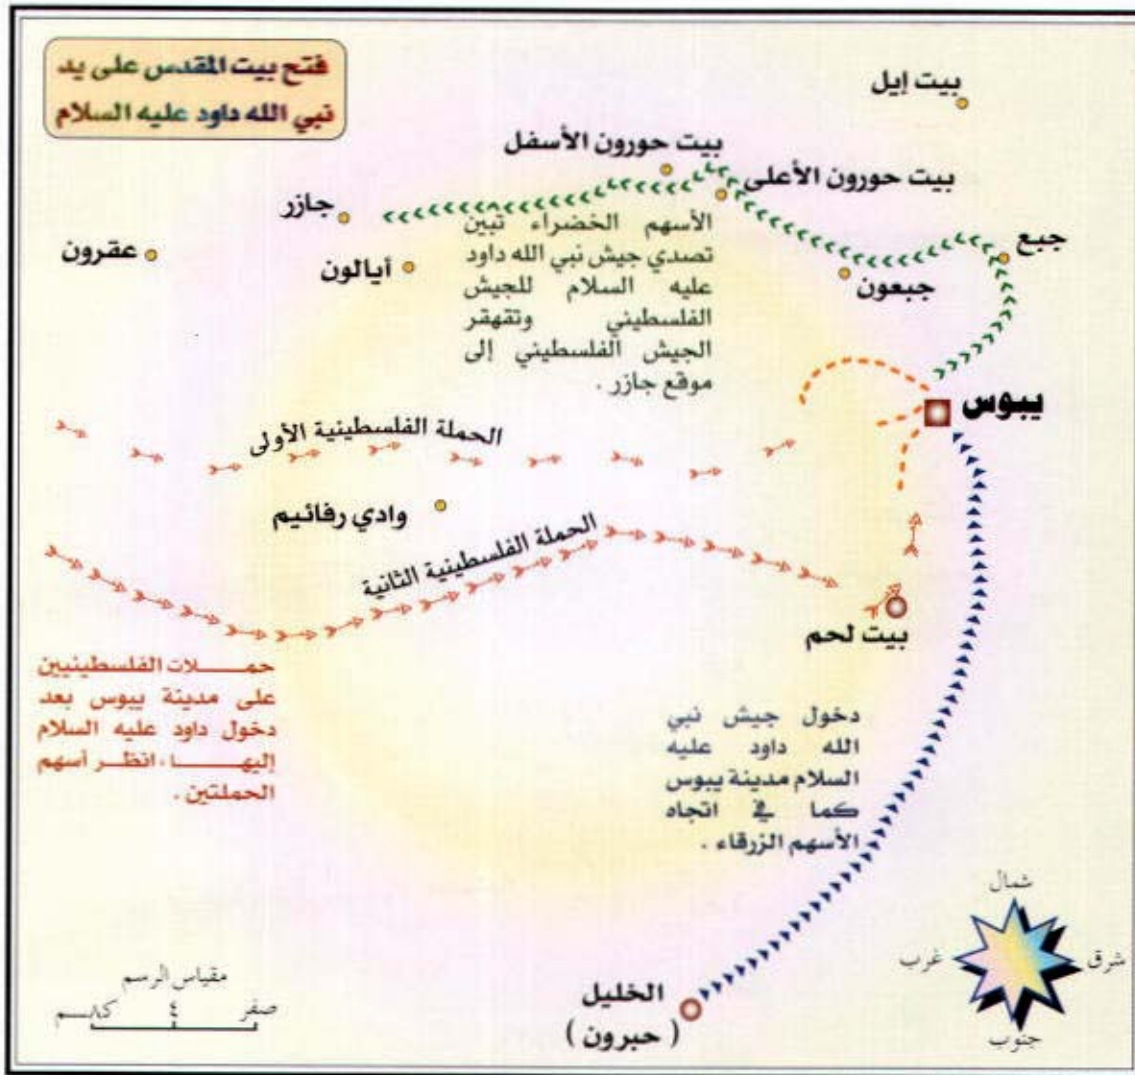 فتح بيت المقدس على يد
نبي الله داود عليه السلام
بيت إيل
بيت حورون الأسفل
بيت حورون الأعلى
جازر
جبع
عقرون
أيالون
جبعون
الأسهم الخضراء تبين
تصدي جيش نبي الله داود
عليه السلام للجيش
الفلسطيني وتقهقر
الجيش الفلسطيني إلى
موقع جازر .
يبوس
الحملة الفلسطينية الأولى
وادي رفائيم
الحملة الفلسطينية الثانية
بيت لحم
حمـــــلات الفلسطينيين
على مدينة يبوس بعد
دخول داود عليه السلام
إليهـــــا ، انظــر أسهم
الحملتين .
دخول جيش نبي
الله داود عليه
السلام مدينة يبوس
كما في اتجاه
الأسهم الزرقاء .
شمال
شرق
غرب
جنوب
مقياس الرسم
صفر ٤ ٨كم
الخليل
( حبرون )